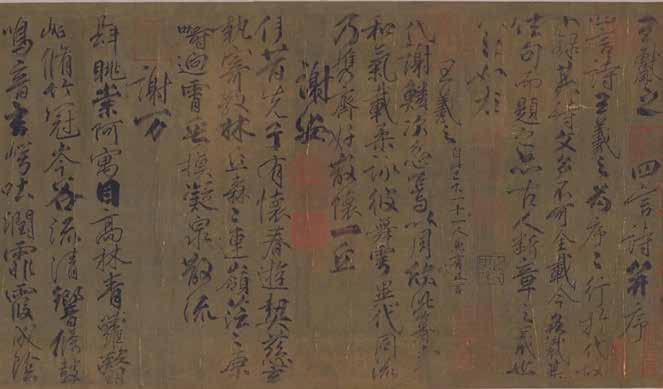 王獻之 四言詩并序
四言詩王羲之為序序行於代故
不錄其詩文多不可全載今各裁其
佳句而題之亦古人斷章之義也
王羲之 自此已下十一人
代謝鱗次忽焉以周欣此暮春
和氣載柔詠彼舞雩異代同流
乃攜齊好散懷一丘
謝安
伊昔先子有懷春遊契茲言
執寄傲林丘森森連嶺茫茫原
疇迥霄垂凝泉散流
謝万
肆眺崇阿寓目高林青蘿翳
岫脩竹冠岑谷流清響條鼓
鳴音玄崿吐潤霏霧成陰